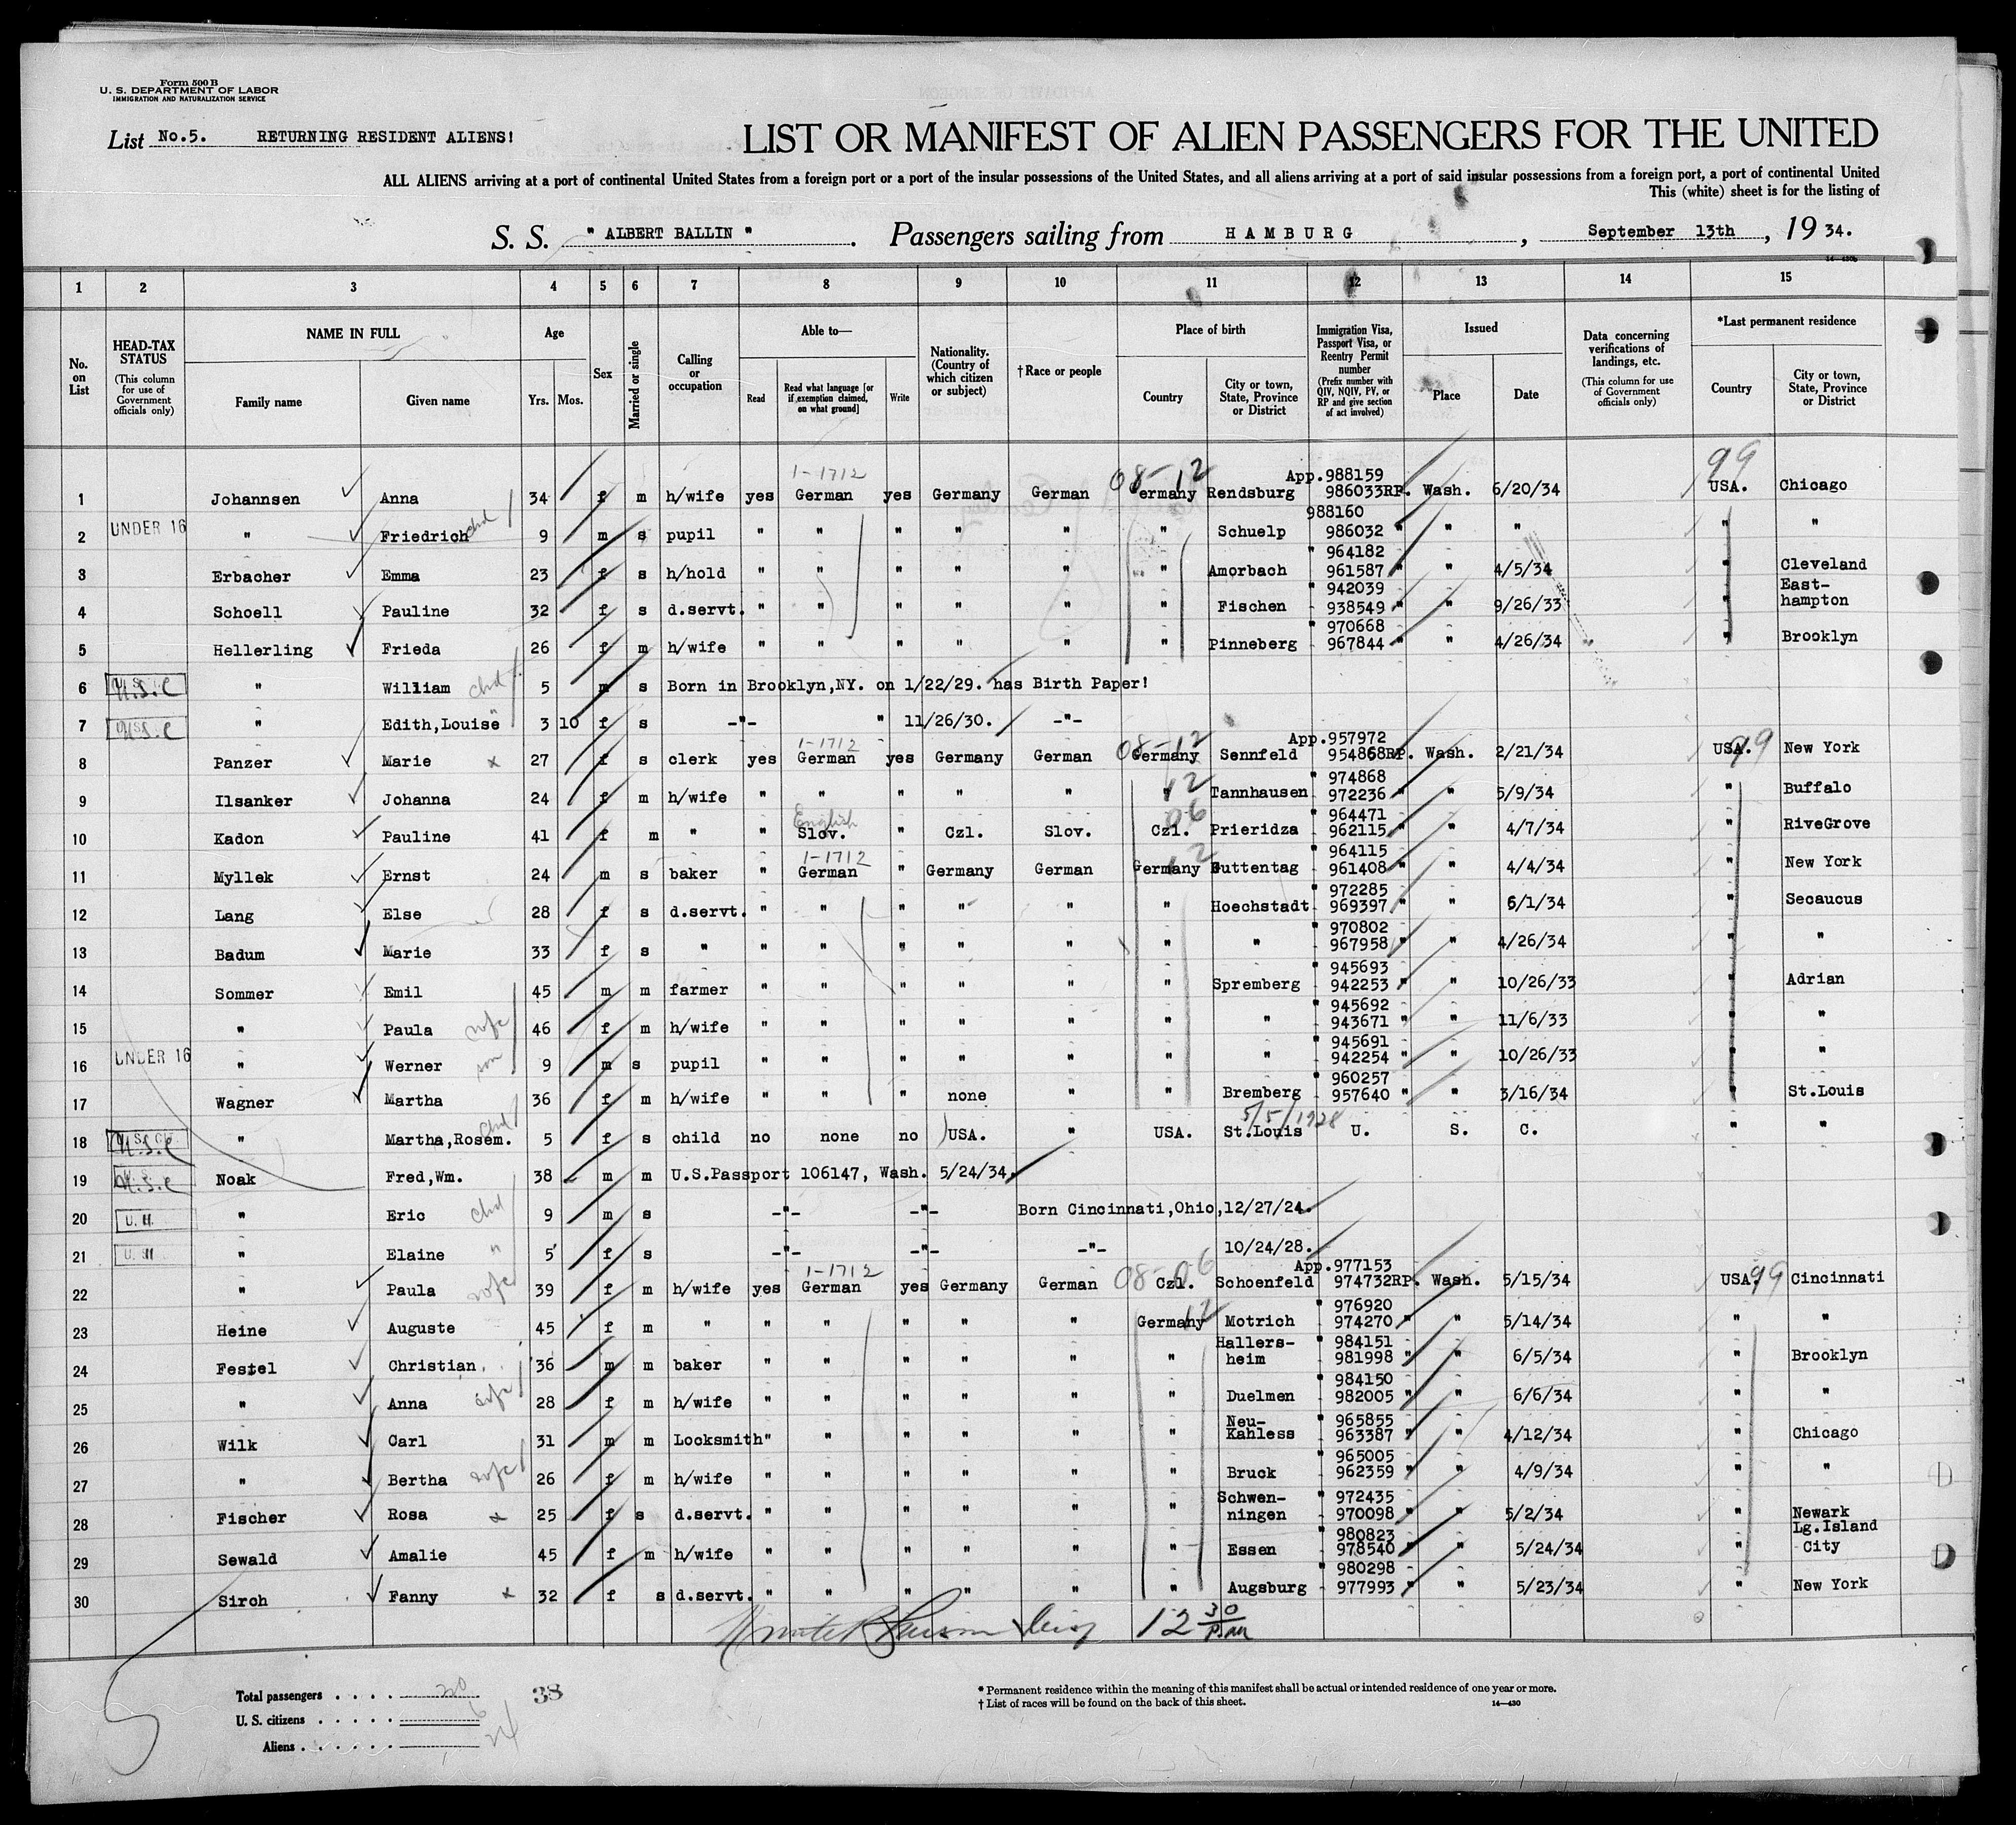 Form 500 B
U. S. DEPARTMENT OF LABOR
IMMIGRATION AND NATURALIZATION SERVICE
List No.5. RETURNING RESIDENT ALIENS!
LIST OR MANIFEST OF ALIEN PASSENGERS FOR THE UNITED
ALL ALIENS arriving at a port of continental United States from a foreign port or a port of the insular possessions of the United States, and all aliens arriving at a port of said insular possessions from a foreign port, a port of continental United
This (white) sheet is for the listing of
S. S. " ALBERT BALLIN ". Passengers sailing from HAMBURG, September 13th, 19 34.
1 2 3 4 5 6 7 8 9 10 11 12 13 14 15
No. on List
HEAD-TAX STATUS (This column for use of Government officials only)
NAME IN FULL Family name Given name
Age Yrs. Mos.
Sex
Married or single
Calling or occupation
Able to— Read Read what language [or if exemption claimed, on what ground] Write
Nationality. (Country of which citizen or subject)
† Race or people
Place of birth Country City or town, State, Province or District
Immigration Visa, Passport Visa, or Reentry Permit number (Prefix number with QIV, NQIV, PV, or RP and give section of act involved)
Issued Place Date
Data concerning verifications of landings, etc. (This column for use of Government officials only)
*Last permanent residence Country City or town, State, Province or District
1-1712 08-12 App.988159 99
1 Johannsen Anna 34 f m h/wife yes German yes Germany German Germany Rendsburg 986033RP. Wash. 6/20/34 USA. Chicago
988160
2 UNDER 16 " Friedrich chd 9 m s pupil " " " " " " Schuelp 986032 " " " " "
" 964182
3 Erbacher Emma 23 f s h/hold " " " " " " Amorbach 961587 " " 4/5/34 " Cleveland
" 942039 East-
4 Schoell Pauline 32 f s d.servt. " " " " " " Fischen 938549 " " 9/26/33 " hampton
" 970668
5 Hellerling Frieda 26 f m h/wife " " " " " " Pinneberg 967844 " " 4/26/34 " Brooklyn
6 U.S.C " William chd 5 m s Born in Brooklyn,NY. on 1/22/29. has Birth Paper!
7 U.S.C " Edith,Louise " 3 10 f s -"- " 11/26/30. -"-
1-1712 08-12 App.957972
8 Panzer Marie x 27 f s clerk yes German yes Germany German Germany Sennfeld 954868RP. Wash. 2/21/34 USA. 99 New York
12 " 974868
9 Ilsanker Johanna 24 f m h/wife " " " " " " Tannhausen 972236 " " 5/9/34 " Buffalo
English 06 " 964471
10 Kadon Pauline 41 f m " " Slov. " Czl. Slov. Czl. Prieridza 962115 " " 4/7/34 " RiveGrove
1-1712 12 " 964115
11 Myllek Ernst 24 m s baker " German " Germany German Germany Guttentag 961408 " " 4/4/34 " New York
" 972285
12 Lang Else 28 f s d.servt. " " " " " " Hoechstadt 969397 " " 5/1/34 " Secaucus
" 970802
13 Badum Marie 33 f s " " " " " " " " 967958 " " 4/26/34 " "
" 945693
14 Sommer Emil 45 m m farmer " " " " " " Spremberg 942253 " " 10/26/33 " Adrian
" 945692
15 " Paula wife 46 f m h/wife " " " " " " " 943671 " " 11/6/33 " "
" 945691
16 UNDER 16 " Werner son 9 m s pupil " " " " " " " 942254 " " 10/26/33 " "
" 960257
17 Wagner Martha 36 f m h/wife " " " none " " Bremberg 957640 " " 3/16/34 " St.Louis
chd 5/5/1928
18 U.S.C " Martha,Rosem. 5 f s child no none no USA. " USA. St.Louis U. S. C. " "
19 U.S.C Noak Fred,Wm. 38 m m U.S.Passport 106147, Wash. 5/24/34.
20 " Eric chd 9 m s -"- -"- Born Cincinnati,Ohio,12/27/24.
21 " Elaine " 5 f s -"- -"- -"- 10/24/28.
1-1712 08-06 App.977153
22 " Paula wife 39 f m h/wife yes German yes Germany German Czl. Schoenfeld 974732RP. Wash. 5/15/34 USA. 99 Cincinnati
12 " 976920
23 Heine Auguste 45 f m " " " " " " Germany Motrich 974270 " " 5/14/34 " "
Hallers- " 984151
24 Festel Christian 36 m m baker " " " " " " heim 981998 " " 6/5/34 " Brooklyn
" 984150
25 " Anna wife 28 f m h/wife " " " " " " Duelmen 982005 " " 6/6/34 " "
Neu- " 965855
26 Wilk Carl 31 m m Locksmith " " " " " " Kahless 963387 " " 4/12/34 " Chicago
" 965005
27 " Bertha wife 26 f m h/wife " " " " " " Bruck 962359 " " 4/9/34 " "
Schwen- " 972435
28 Fischer Rosa x 25 f s d.servt. " " " " " " ningen 970098 " " 5/2/34 " Newark
" 980823 Lg.Island
29 Sewald Amalie 45 f m h/wife " " " " " " Essen 978540 " " 5/24/34 " City
" 980298
30 Sirch Fanny x 32 f s d.servt. " " " " " " Augsburg 977993 " " 5/23/34 " New York
12 30 P.M
Total passengers . . . . 30 38
U. S. citizens . . . . . 6
Aliens . . . . . . 24
* Permanent residence within the meaning of this manifest shall be actual or intended residence of one year or more.
† List of races will be found on the back of this sheet. 14—430